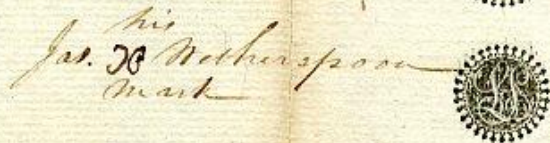 his
Jas. X Wetherspoon
mark